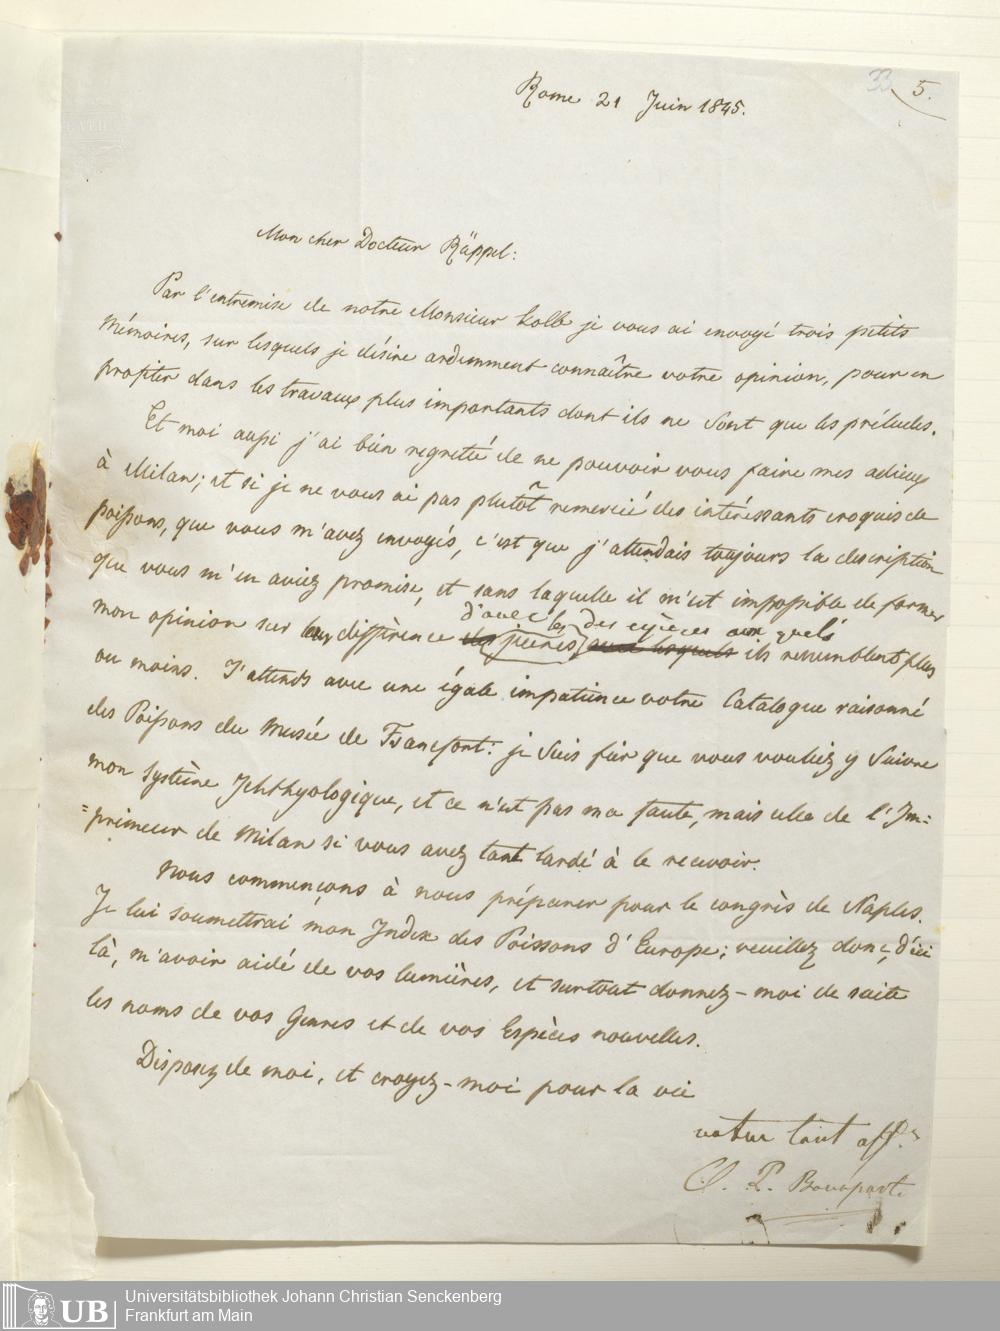 33 5.
Rome 21 Juin 1845.
Mon cher Docteur Räppel:
Par l'entremise de notre Monsieur Kolb je vous ai envoyé trois petits
Mémoires, sur lesquels je désire ardemment connaître votre opinion, pour en
profiter dans les travaux plus importants dont ils ne sont que les préludes.
Et moi aussi j'ai bien regretté de ne pouvoir vous faire mes adieux
à Milan; et si je ne vous ai pas plutôt remercié des intéressants croquis de
poissons, que vous m'avez envoyés, c'est que j'attendais toujours la description
que vous m'en aviez promise, et sans laquelle il m'est impossible de former
d'avec les des espèces aux quels
mon opinion sur leur différence ils ressemblent plus
ou moins. J'attends avec une égale impatience votre Catalogue raisonné
des Poissons du Musée de Francfort: je suis fier que vous vouliez y suivre
mon système Ichthyologique, et ce n'est pas ma faute, mais celle de l'Im=
=primeur de Milan si vous avez tant tardé à le recevoir.
Nous commençons à nous préparer pour le congrès de Naples.
Je lui soumettrai mon Index des Poissons d'Europe; veuillez donc, d'ici
là, m'avoir aidé de vos lumières, et surtout donnez-moi de suite
les noms de vos Genres et de vos Espèces nouvelles.
Disposez de moi, et croyez-moi pour la vie
votre tout aff.
C. L. Bonaparte
UB Universitätsbibliothek Johann Christian Senckenberg
Frankfurt am Main